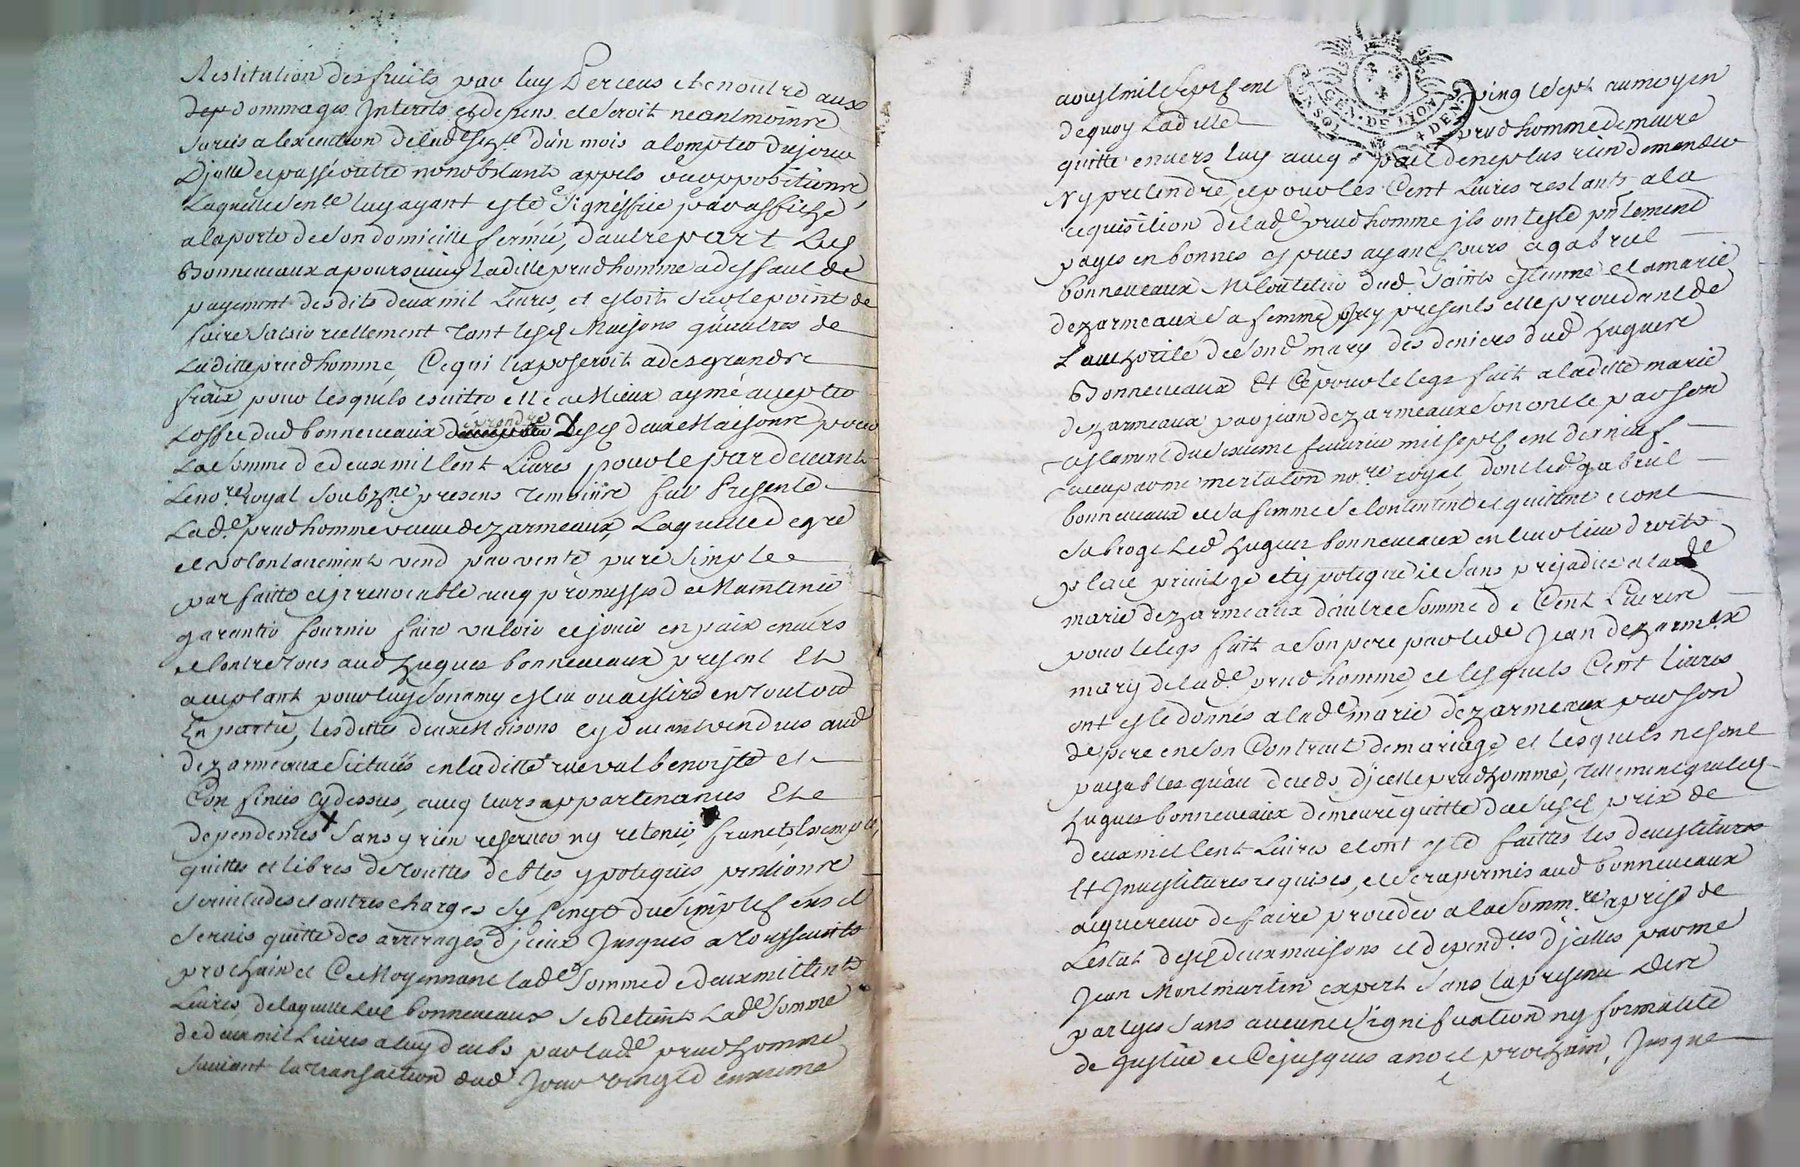 Restitution des fruits par luy perceus et en outre aux
depp dommages Interets et despens, et seroit neantmoinse
sursis a lexecution de lad.e d'un mois a compter du jour
Djcelle et passé outre nonobstants appels ou oppositionse
Laquelle sen.ce luy ayant esté signiffiée par affiche
a la porte de son domicille fermée, d'autre part Led
Bonneveaux a poursuivy Laditte prud homme a deffaut de
payement desdits deux mil Livres, et estoit sur le point de
faire saisir reellement tant lesd Maisons qu'autres de
Laditte prud homme, Ce qui l'exposeroit a des grandse
fraix pour lesquels esvitter elle a Mieux aymé accepter
Loffre dud bonneveaux de prendre Lesd deux Maisonse pour
La somme de deux mil cent Livres, pour le par devant
Le no.re royal soubz.ne presens temoinse fut Presente
Lad.e prud homme veuve dezarmeaux, Laquelle de gré
et volontairement vend par vente pure simple
parfaitte et jrrevocable avecq promesse de Maintenir
garentir fournir faire valoir et jouir en paix envers
et Contre tous aud hugues bonneveaux present Et
acceptant pour luy son amy eslu ou a eslire en tout ou
En partie, Lesdittes deux Maisons cy devant vendues aud
dezarmeaux scituées en laditte rue valbenoiste et
Confinées cy dessus, avecq leurs appartenances Et
dependences sans y rien reserver ny retenir, francs, exempts
quittes et libres de touttes debtes ypoteques pentionse
servitudes et autres charges sy Ce n'est du simple Cens et
servis quitte des arrerages djceux Jusques a toussaints
prochain et Ce Moyennant lad.e somme de deux mil cent
Livres, de laquelle Led bonneveaux se Retient Lad.e somme
de deux mil Livres a luy deubs par lad.e prud homme
suivant la transaction dud Jour vingt deuxieme
aoust mil sept Cent vingt et sept au moyen
de quoy Laditte prud homme demeure
quitte envers luy avecq pact de ne plus rien demander
ny pretendre, et pour les Cent Livres restants a la
requisition de lad.e prud homme jls ont esté pntement
payes en bonnes especes ayant Cours a gabriel
bonneveaux dud. Saint estienne et a marie
dezarmeaux sa femme jcy presents elle procedant de
L'authorité de sond mary des deniers dud hugues
Bonneveaux Et Ce pour le legs fait a laditte marie
dezarmeaux par jean dezarmeaux son oncle par son
testament du sixieme fevrier mil sept Cent dix neuf
receu par me mertaton no.re royal, dont led gabriel
bonneveaux et sa femme se Contentent et quittent et ont
subrogé Led hugues bonneveaux en leur lieu droits
place privilege et ypoteque et sans prejudice a lad.e
marie dezarmeaux d'autre somme de Cent Livrese
pour le legs fait a son pere par led Jean dezarmeaux
mary de lad.e prud homme, et lesquels Cent Livres
ont esté donnés a lad.e marie dezarmeaux par son
d.e pere en son Contrait de mariage, et lesquels ne sont
payables qu'au deceds djcelle prud homme, tellement que led
hugues bonneveaux demeure quitte du susd prix de
deux mil Cent Livres et ont esté faittes les devestitures
Et Investitures requises, et sera permis aud bonneveaux
acquereur de faire proceder a la somm.re aprise de
L'estat desd deux maisons et depend.ces djcelles par me
Jean Montmartin expert sans la presence dese
partyes sans aucune signification ny formalité
de justice et Ce jusques a noel prochain, Jusque
GEN. DE LYON